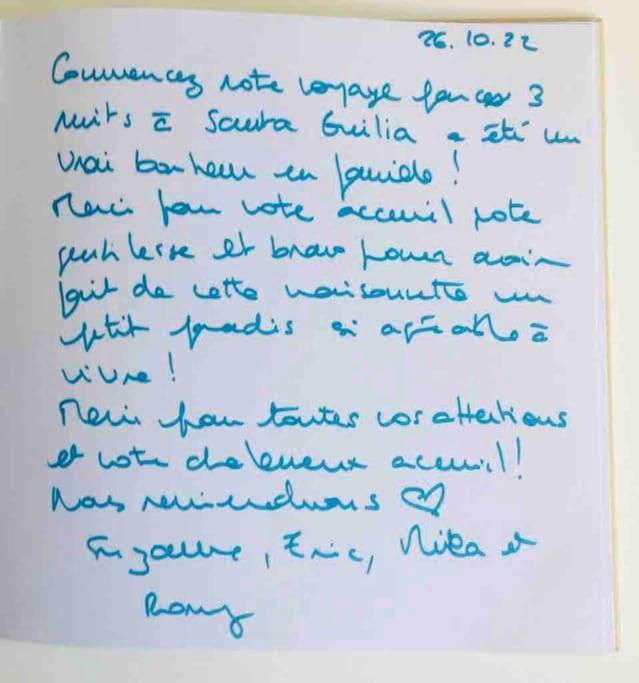 26.10.22
Commencez notre voyage par ces 3
nuits à Santa Guilia a été un
vrai bonheur en famille !
Merci pour votre acceuil votre
gentilesse et bravo pour avoir
fait de cette maisonnette un
petit paradis si agréable à
vivre !
Merci pour toutes vos attentions
et votre chaleureux acceuil !
Nous reviendrons ♡
Suzanne, Eric, Mika et
Romy